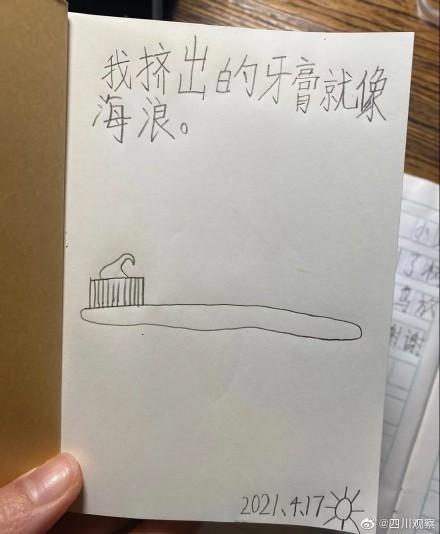 我挤出的牙膏就像
海浪。
2021.4.17
谢谢
@四川观察